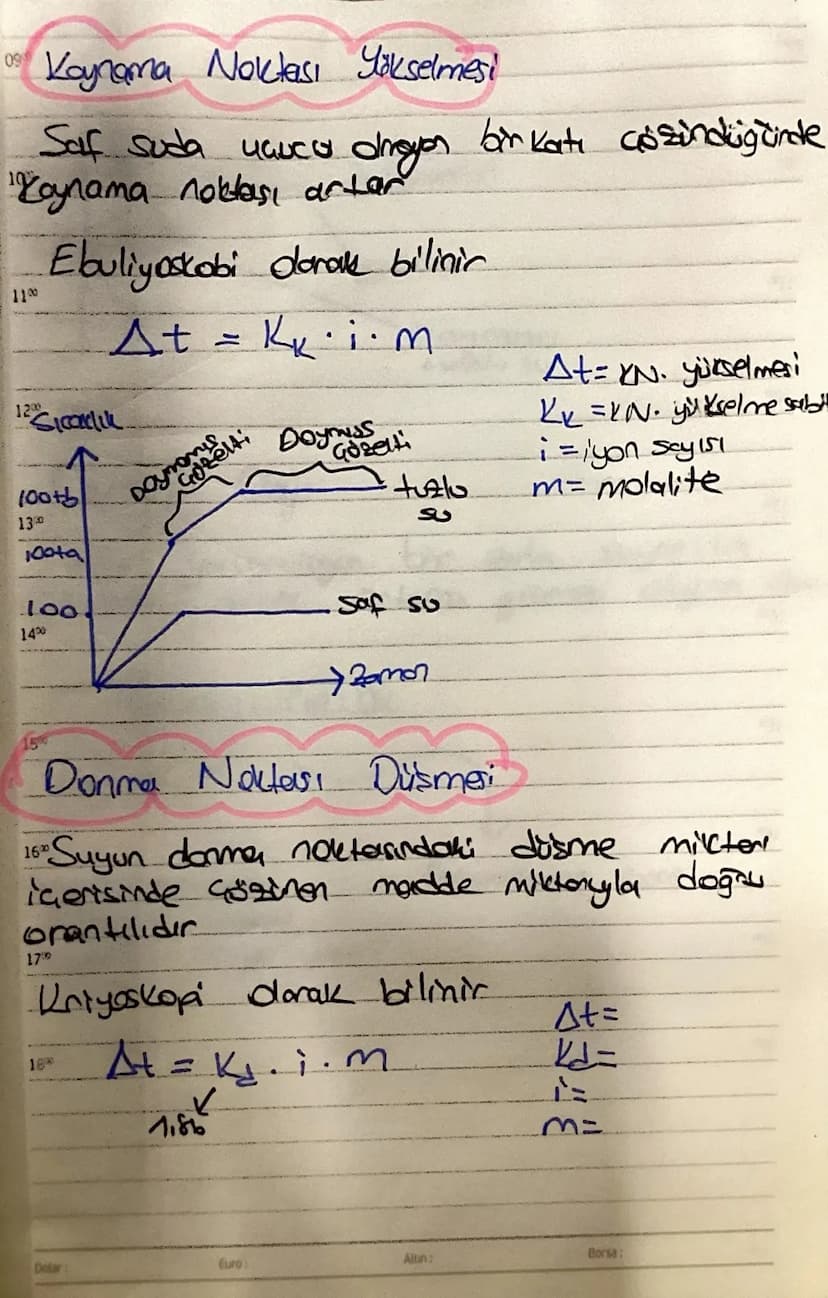 09
Kaynama Noktası Yükselmesi
Saf suda uçucu olmayan bir katı çözündüğünde
10⁰⁰
Kaynama noktası artar
Ebuliyoskobi olarak bilinir
11⁰⁰
Δt = Kₖ · i · m
Δt = KN. yükselmesi
Kₖ = KN. yükselme sabit
i = iyon sayısı
m = molalite
12⁰⁰
Sıcaklık
Doymamış çözelti
Doymuş çözelti
100+b
tuzlu su
13⁰⁰
100+a
100
saf su
14⁰⁰
Zaman
15⁰⁰
Donma Noktası Düşmesi
16⁰⁰ Suyun donma noktasındaki düşme miktarı
içerisinde çözünen madde miktarıyla doğru
orantılıdır
17⁰⁰
Kriyoskopi olarak bilinir
Δt =
18⁰⁰ Δt = Kd . i . m
Kd =
i =
1,86
m =
Dolar :
Euro :
Altın :
Borsa :